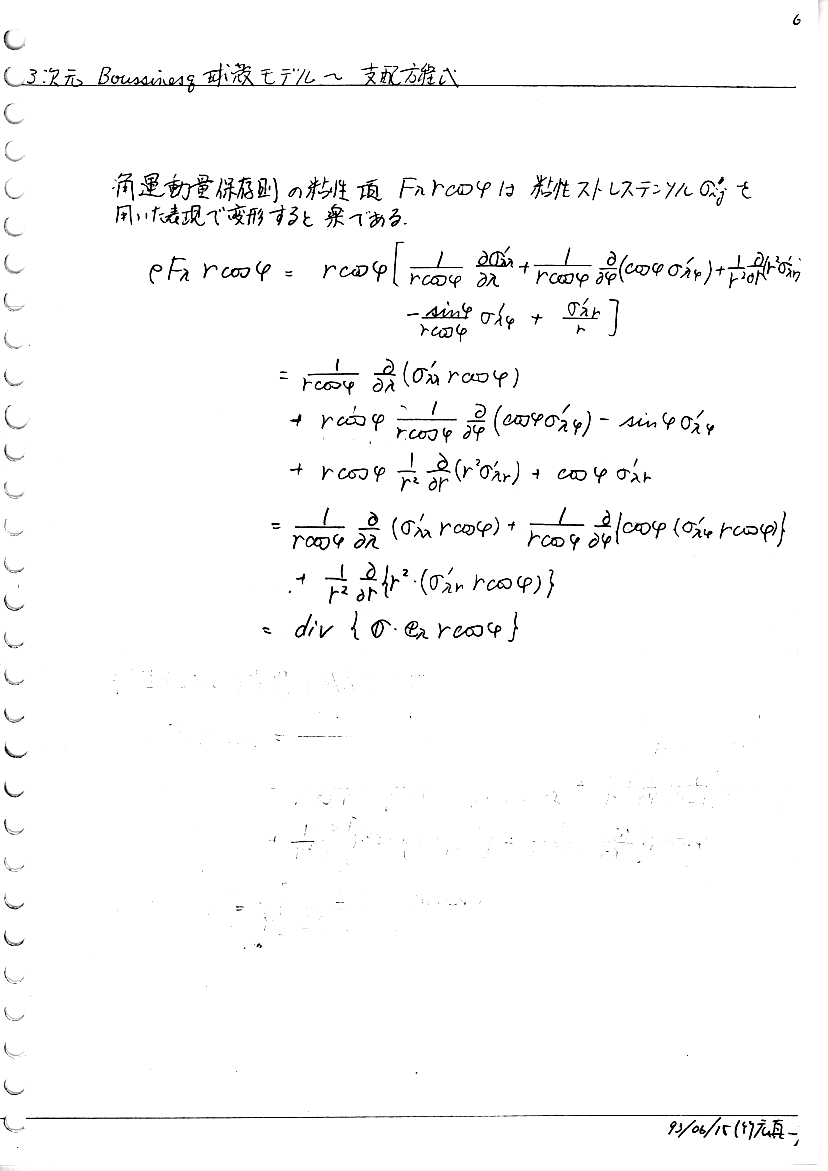 6
3次元 Boussinesq 球殻モデル〜 支配方程式
角運動量保存則の粘性項 Fλ r cosφ は 粘性ストレステンソル σ'ij を
用いた表現で変形すると 楽である.
ρFλ r cosφ = r cosφ [ 1/(r cosφ) ∂σ'λλ/∂λ + 1/(r cosφ) ∂/∂φ (cosφ σ'λφ) + 1/r² ∂/∂r (r²σ'λr)
- sinφ/(r cosφ) σ'λφ + σ'λr/r ]
= 1/(r cosφ) ∂/∂λ (σ'λλ r cosφ)
+ r cosφ 1/(r cosφ) ∂/∂φ (cosφ σ'λφ) - sinφ σ'λφ
+ r cosφ 1/r² ∂/∂r (r²σ'λr) + cosφ σ'λr
= 1/(r cosφ) ∂/∂λ (σ'λλ r cosφ) + 1/(r cosφ) ∂/∂φ {cosφ (σ'λφ r cosφ)}
+ 1/r² ∂/∂r {r²·(σ'λr r cosφ)}
= div { σ · eλ r cosφ }
93/06/15 (竹広真一)